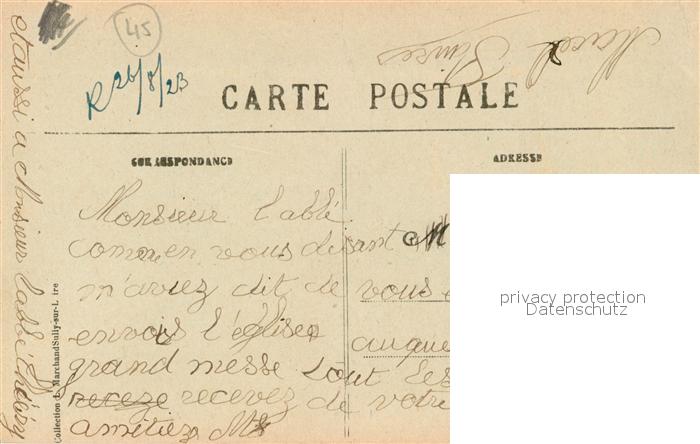 45
R 26/8/23
Marcel
CARTE POSTALE
CORRESPONDANCE
ADRESSE
Monsieur l'abbé
comme vous disant
m'aviez dit de vous
envois l'église auque
grand messe tout les
recevez de votre
amitiez
etaussi a Monsieur l'abbé
Collection de Marchand Sully-sur-L ire
privacy protection
Datenschutz